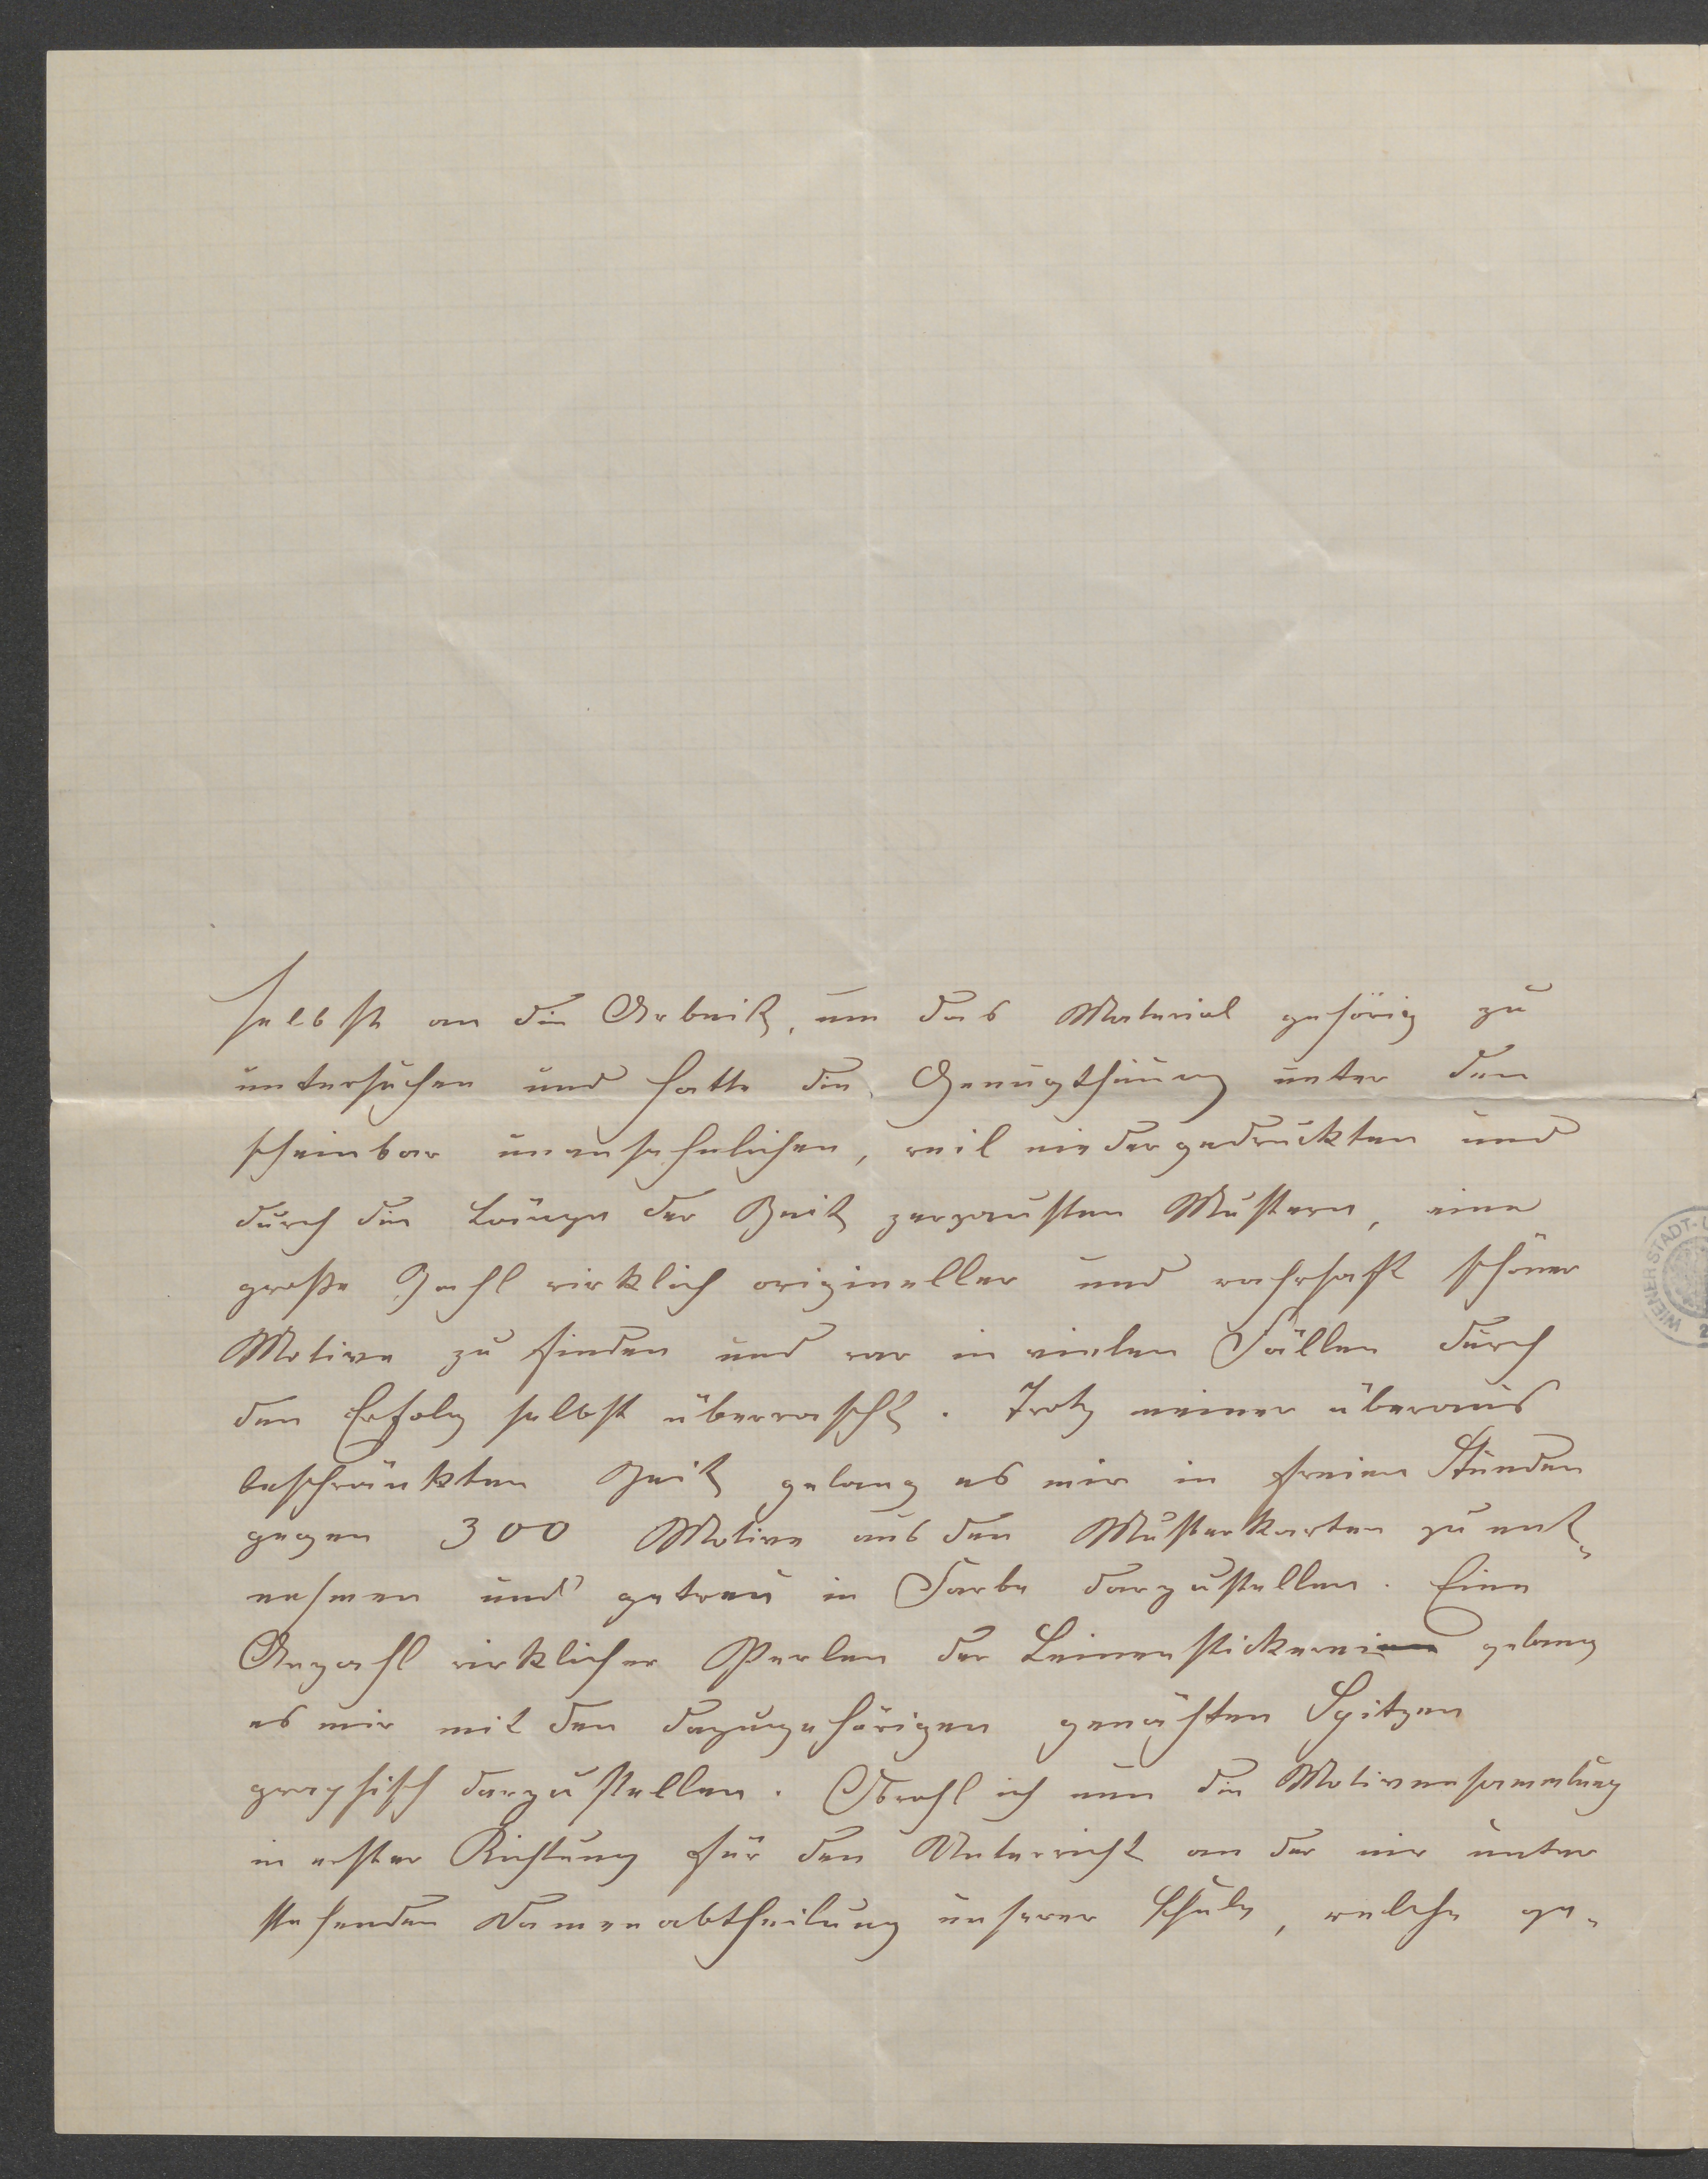 selbst an die Arbeit, um das Material gehörig zu
untersuchen und hatte die Genugthuung unter den
scheinbar unansehnlichen, weil niedergedrückten und
durch die Länge der Zeit zerzausten Mustern, eine
große Zahl wirklich origineller und wahrhaft schöner
Motive zu finden und war in vielen Fällen durch
den Erfolg selbst überrascht. Trotz meiner überaus
beschränkten Zeit gelang es mir in freien Stunden
gegen 300 Motive aus den Musterkarten zu ent-
nehmen und getreu in Farbe darzustellen. Eine
Anzahl wirklicher Perlen der Leinenstickerei gelang
es mir mit den dazugehörigen genähten Spitzen
graphisch darzustellen. Obwohl ich nun die Motivensammlung
in erster Richtung für den Unterricht an der mir unter
stehenden Damenabtheilung unserer Schule, welche ge-
WIENER STADT-